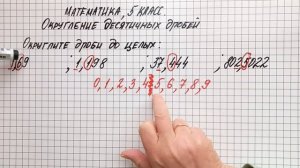 МАТЕМАТИКА, 5 КЛАСС.
ОКРУГЛЕНИЕ ДЕСЯТИЧНЫХ ДРОБЕЙ
Округлите дроби до целых:
; 1,198 ; 37,444 ; 802,5022
0, 1, 2, 3, 4 5, 6, 7, 8, 9